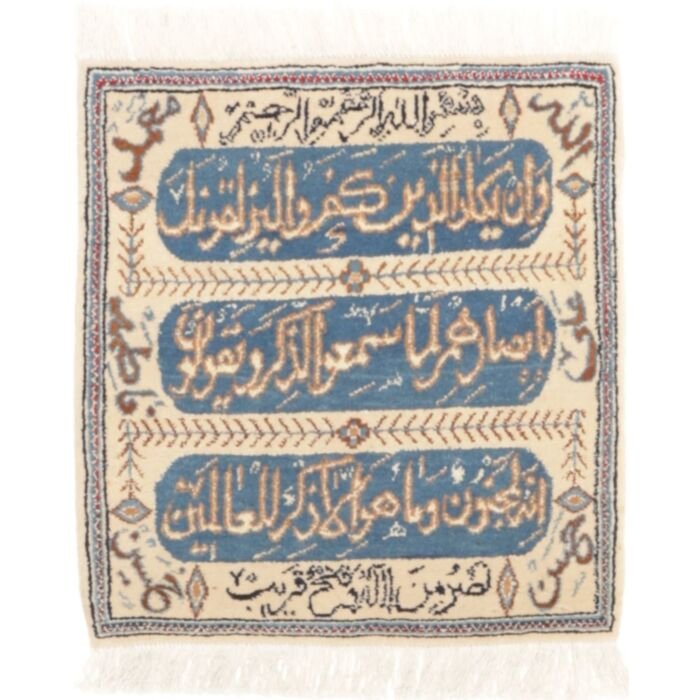 الله
محمد
بسم الله الرحمن الرحيم
وان يكاد الذين كفروا ليزلقونك
بابصارهم لما سمعوا الذكر ويقولون
علي
فاطمه
انه لمجنون وما هو الا ذكر للعالمين
حسين
حسن
نصر من الله فتح قريب